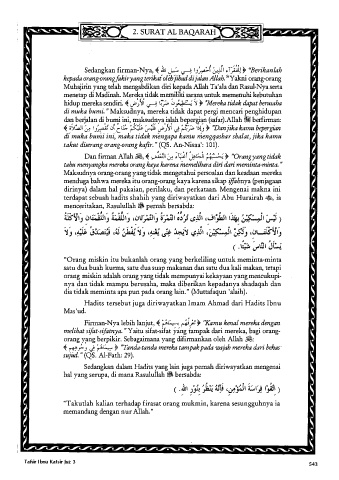 2. SURAT AL BAQARAH
Sedangkan firman-Nya, ﴿ لِلْفُقَرَاءِ الَّذِينَ أُحْصِرُوا فِي سَبِيلِ اللَّهِ ﴾ "Berikanlah
kepada orang-orang fakir yang terikat oleh jihad di jalan Allah." Yakni orang-orang
Muhajirin yang telah mengabdikan diri kepada Allah Ta'ala dan Rasul-Nya serta
menetap di Madinah. Mereka tidak memiliki sarana untuk memenuhi kebutuhan
hidup mereka sendiri. ﴿ لَا يَسْتَطِيعُونَ ضَرْبًا فِي الْأَرْضِ ﴾ "Mereka tidak dapat berusaha
di muka bumi." Maksudnya, mereka tidak dapat pergi mencari penghidupan
dan berjalan di bumi ini, maksudnya ialah bepergian (safar). Allah ﷻ berfirman:
﴿ وَإِذَا ضَرَبْتُمْ فِي الْأَرْضِ فَلَيْسَ عَلَيْكُمْ جُنَاحٌ أَن تَقْصُرُوا مِنَ الصَّلَاةِ ﴾ "Dan jika kamu bepergian
di muka bumi ini, maka tidak mengapa kamu mengqashar shalat, jika kamu
takut diserang orang-orang kafir." (QS. An-Nisaa': 101).
Dan firman Allah ﷻ, ﴿ يَحْسَبُهُمُ الْجَاهِلُ أَغْنِيَاءَ مِنَ التَّعَفُّفِ ﴾ "Orang yang tidak
tahu menyangka mereka orang kaya karena memelihara diri dari meminta-minta."
Maksudnya orang-orang yang tidak mengetahui persoalan dan keadaan mereka
menduga bahwa mereka itu orang-orang kaya karena sikap iffahnya (penjagaan
dirinya) dalam hal pakaian, perilaku, dan perkataan. Mengenai makna ini
terdapat sebuah hadits shahih yang diriwayatkan dari Abu Hurairah ؓ, ia
menceritakan, Rasulullah ﷺ pernah bersabda:
( لَيْسَ الْمِسْكِيْنُ بِهَذَا الطَّوَّافِ، الَّذِي تَرُدُّهُ التَّمْرَةُ وَالتَّمْرَتَانِ، وَاللُّقْمَةُ وَاللُّقْمَتَانِ وَالْأُكْلَةُ
وَالْأُكْلَتَانِ، وَلَكِنَّ الْمِسْكِيْنَ، الَّذِي لَا يَجِدُ غِنًى يُغْنِيْهِ، وَلَا يُفْطَنُ لَهُ، فَيُتَصَدَّقُ عَلَيْهِ، وَلَا
يَسْأَلُ النَّاسَ شَيْئًا. )
"Orang miskin itu bukanlah orang yang berkeliling untuk meminta-minta
satu dua buah kurma, satu dua suap makanan dan satu dua kali makan, tetapi
orang miskin adalah orang yang tidak mempunyai kekayaan yang mencukupi-
nya dan tidak mampu berusaha, maka diberikan kepadanya shadaqah dan
dia tidak meminta apa pun pada orang lain." (Muttafaqun 'alaih).
Hadits tersebut juga diriwayatkan Imam Ahmad dari Hadits Ibnu
Mas'ud.
Firman-Nya lebih lanjut, ﴿ تَعْرِفُهُم بِسِيمَاهُمْ ﴾ "Kamu kenal mereka dengan
melihat sifat-sifatnya." Yaitu sifat-sifat yang tampak dari mereka, bagi orang-
orang yang berpikir. Sebagaimana yang difirmankan oleh Allah ﷻ:
﴿ سِيمَاهُمْ فِي وُجُوهِهِم ﴾ "Tanda-tanda mereka tampak pada wajah mereka dari bekas
sujud." (QS. Al-Fath: 29).
Sedangkan dalam Hadits yang lain juga pernah diriwayatkan mengenai
hal yang serupa, di mana Rasulullah ﷺ bersabda:
( اِتَّقُوْا فِرَاسَةَ الْمُؤْمِنِ، فَإِنَّهُ يَنْظُرُ بِنُوْرِ اللهِ. )
"Takutlah kalian terhadap firasat orang mukmin, karena sesungguhnya ia
memandang dengan nur Allah."
Tafsir Ibnu Katsir Juz 3
543